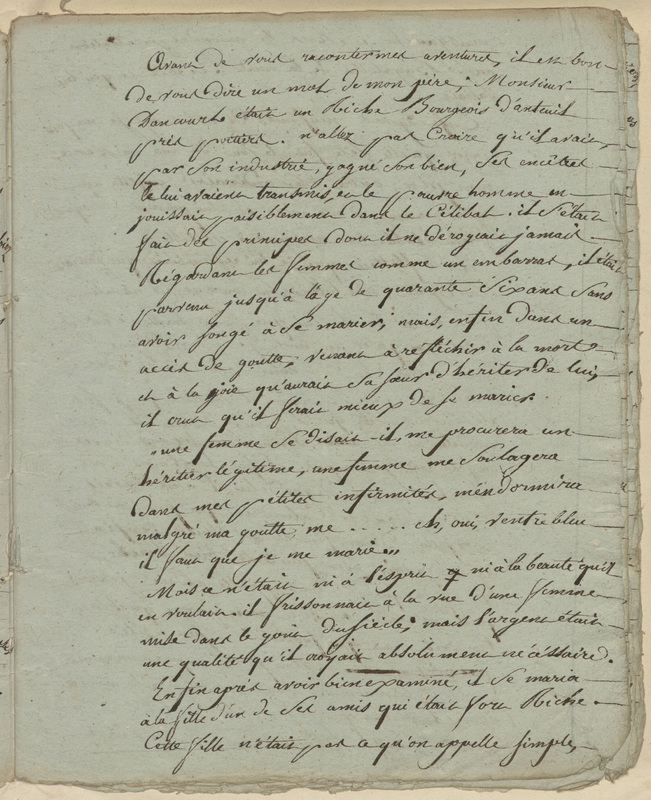 Avant de vous raconter mes aventures, il est bon
de vous dire un mot de mon père; Monsieur
Dancourt était un Riche Bourgeois d'auteuil
près poitiers. n'allez pas Croire qu'il avait,
par son industrie, gagné son bien, Ses encêtres
le lui avaient transmis, et le pauvre homme en
jouissait paisiblement dans le Célibat. il S'était
fait des principes dont il ne dérogeait jamais.
Régardant les femmes comme un embarras, il était
parvenu jusqu'à l'âge de quarante Six ans Sans
avoir songé à Se marier; mais, enfin dans un
accès de goutte, venant à réfléchir à la mort
et à la joie qu'aurait Sa sœur d'hériter de lui,
il crut qu'il ferait mieux de se marier.
"une femme Se disait-il, me procurera un
héritier légitime, une femme me Soulagera
dans mes pétites infirmités, m'endormira
malgré ma goutte, me ..... eh, oui, ventre bleu
il faut que je me marie"
Mais ce n'était ni à l'ésprit ni à la beauté qu'il
en voulait. il frissonnait à la vue d'une femme
mise dans le goût du siècle; mais l'argent était
une qualité qu'il croyait absolument nécéssaire.
Enfin après avoir bien examiné, il Se maria
à la fille d'un de Ses amis qui était fort Riche.
Cette fille n'était pas ce qu'on appelle simple,